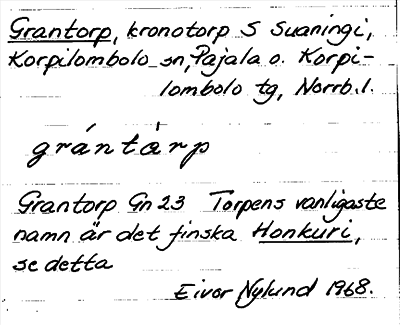 Grantorp, kronotorp S Suaningi,
Korpilombolo sn, Pajala o. Korpi-
lombolo tg, Norrb. l.
grántàrp
Grantorp Gn 23 Torpens vanligaste
namn är det finska Honkuri,
se detta
Eivor Nylund 1968.